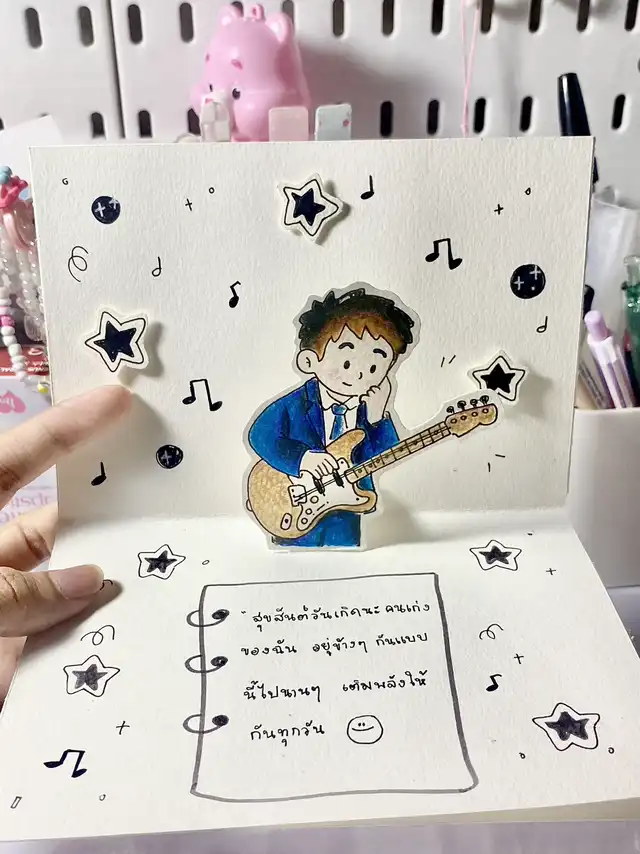 "สุขสันต์วันเกิดนะ คนเก่ง
ของฉัน อยู่ข้างๆ กันแบบ
นี้ไปนานๆ เติมพลังให้
กันทุกวัน